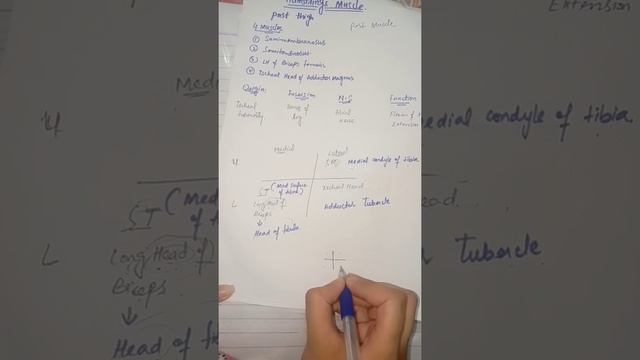 Hamstrings Muscle.
post thigh
post Muscle
4 Muscles
① Semimembranosus
② Semitendinosus
③ LH of Biceps femoris
④ Ischeal Head of Adductor Magnus
Origin Insersion N.S Function
Ischeal Bones of Tibial
leg nerve Extension
Medial Lateral
U SM medial condyle of tibia
ST (Med surface of tibia) Ischeal Head
L Long Head of Biceps Adductor Tubercle
↓
Head of fibula
Extension
Med
U medial condyle of tibia
ST (Med
of t
L Long Head of
Biceps
↓
Head of f
Tubercle